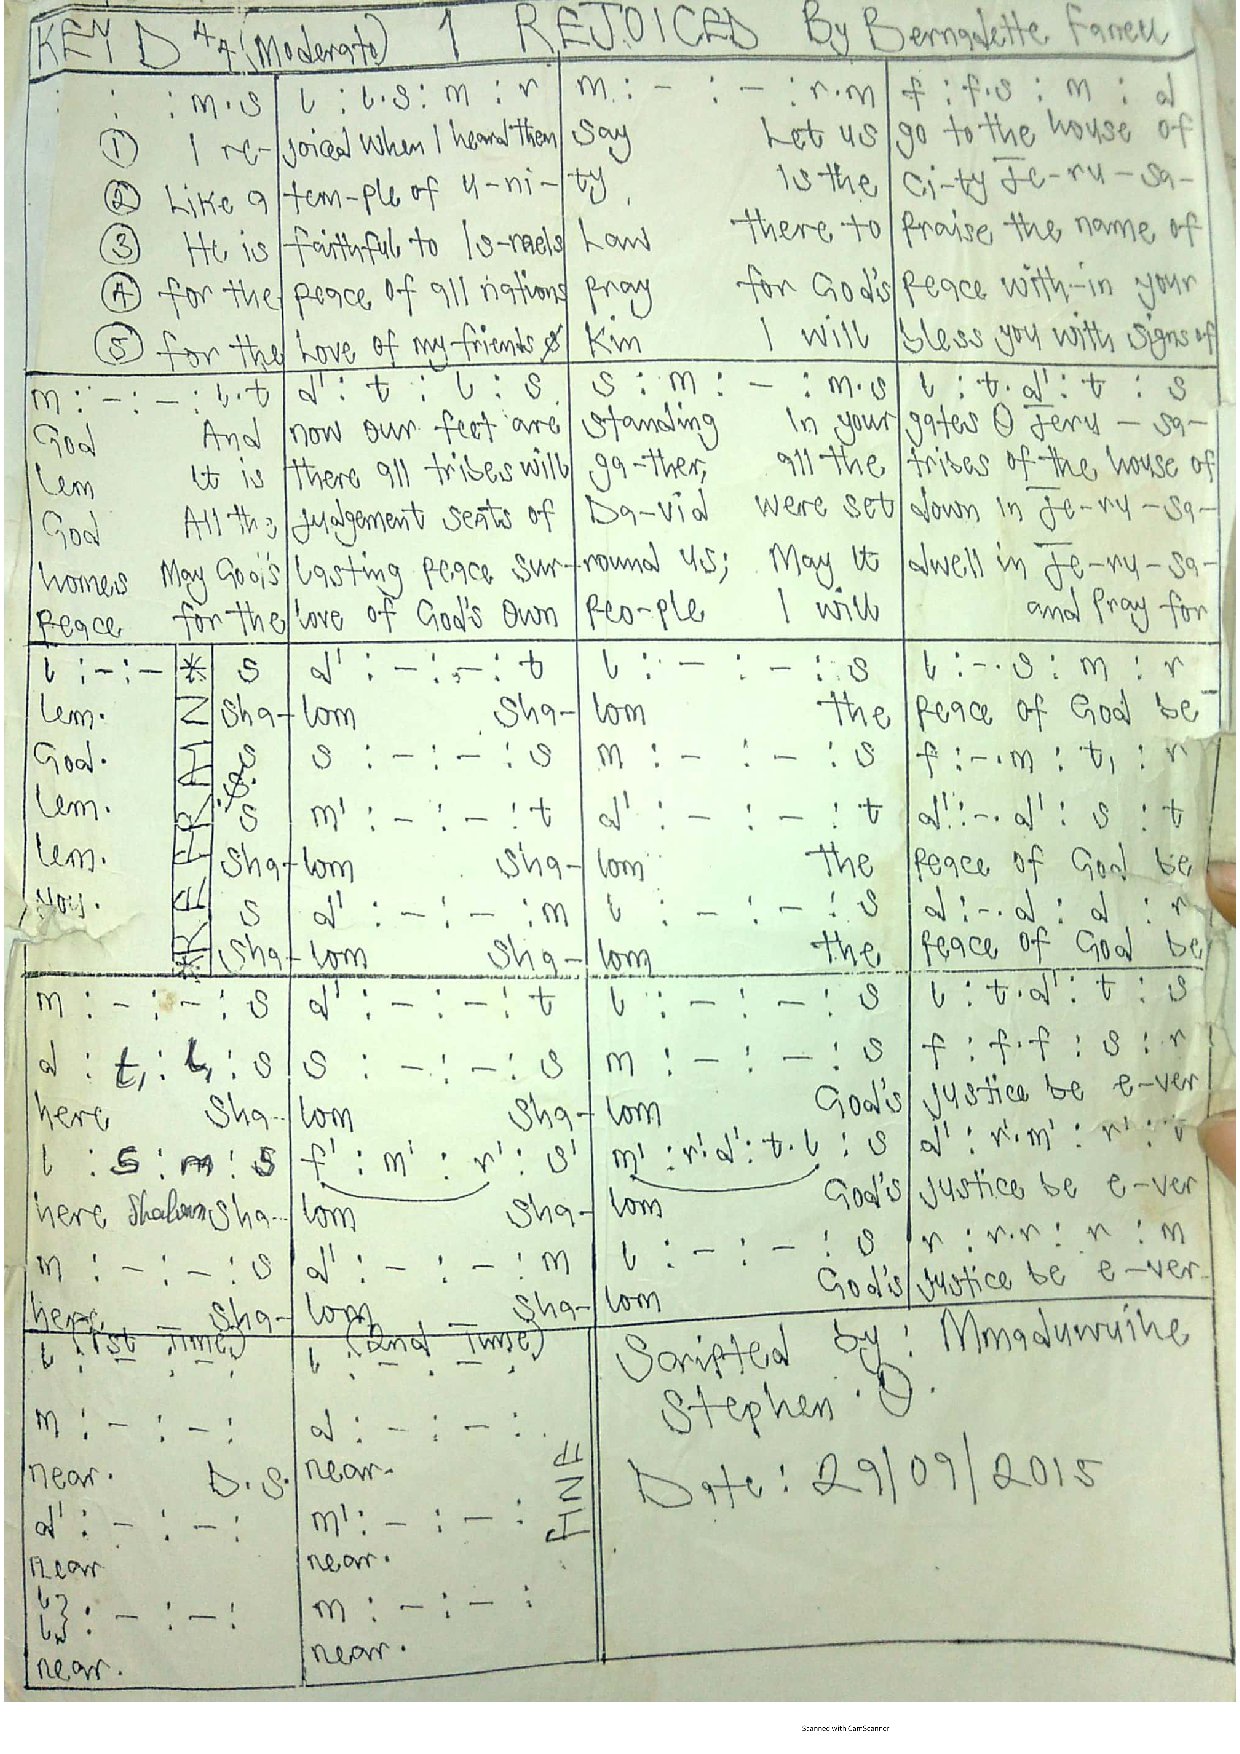 KEY D 4/4 (Moderato) I REJOICED By Bernadette Farrell
: : : m.s | l : l.s : m : r | m : - : - : r.m | f : f.s : m : d
① I re- | joiced when I heard them | say Let us | go to the house of
② Like a | tem-ple of u-ni- | ty, Is the | Ci-ty Je-ru-sa-
③ He is | faithful to Is-raels | Law there to | Praise the name of
④ for the | peace of all nations | pray for God's | Peace with-in your
⑤ for the | Love of my friends & | Kin I will | bless you with signs of
m : - : - : l.t | d' : t : l : s | s : m : - : m.s | l : t.d' : t : s
God And | now our feet are | standing In your | gates O Jeru-sa-
lem It is | there all tribes will | ga-ther, all the | tribes of the house of
God All the | judgement seats of | Da-vid were set | down in Je-ru-sa-
homes May God's | lasting peace sur- | round us; May it | dwell in Je-ru-sa-
Peace for the | love of God's own | Peo-ple I will | and Pray for
l : - : - | * s | d' : - : - : t | l : - : - : s | l : - . s : m : r
lem. | *REFRAIN | Sha- | lom Sha- | lom the | Peace of God be
God. | s | s : - : - : s | m : - : - : s | f : - . m : t, : r
lem. | s | m' : - : - : t | d' : - : - : t | d' : - . d' : s : t
lem. | Sha- | lom Sha- | lom the | Peace of God be
You. | s | d' : - : - : m | l : - : - : s | d : - . d : d : r
Sha- | lom Sha- | lom the | Peace of God be
m : - : - : s | d' : - : - : t | l : - : - : s | l : t.d' : t : s
d : t, : l, : s | s : - : - : s | m : - : - : s | f : f.f : s : r
here Sha- | lom Sha- | lom God's | justice be e-ver
l : s : m : s | f' : m' : r' : s' | m' : r'.d' : t.l : s | d' : r'.m' : r' : t
here Shalom Sha- | lom Sha- | lom God's | justice be e-ver
m : - : - : s | d' : - : - : m | l : - : - : s | r : r.r : r : m
here Sha- | lom Sha- | lom God's | justice be e-ver
(1st Time) | (2nd Time)
l : - : - : | l : - : - :
m : - : - : | d : - : - :
near. D.S. | near.
d' : - : - : | m' : - : - :
near | near.
l : - : - : | m : - : - :
near. | near.
FINE
Scripted by : Mmaduwuike
Stephen . O.
Date : 29/09/2015
Scanned with CamScanner